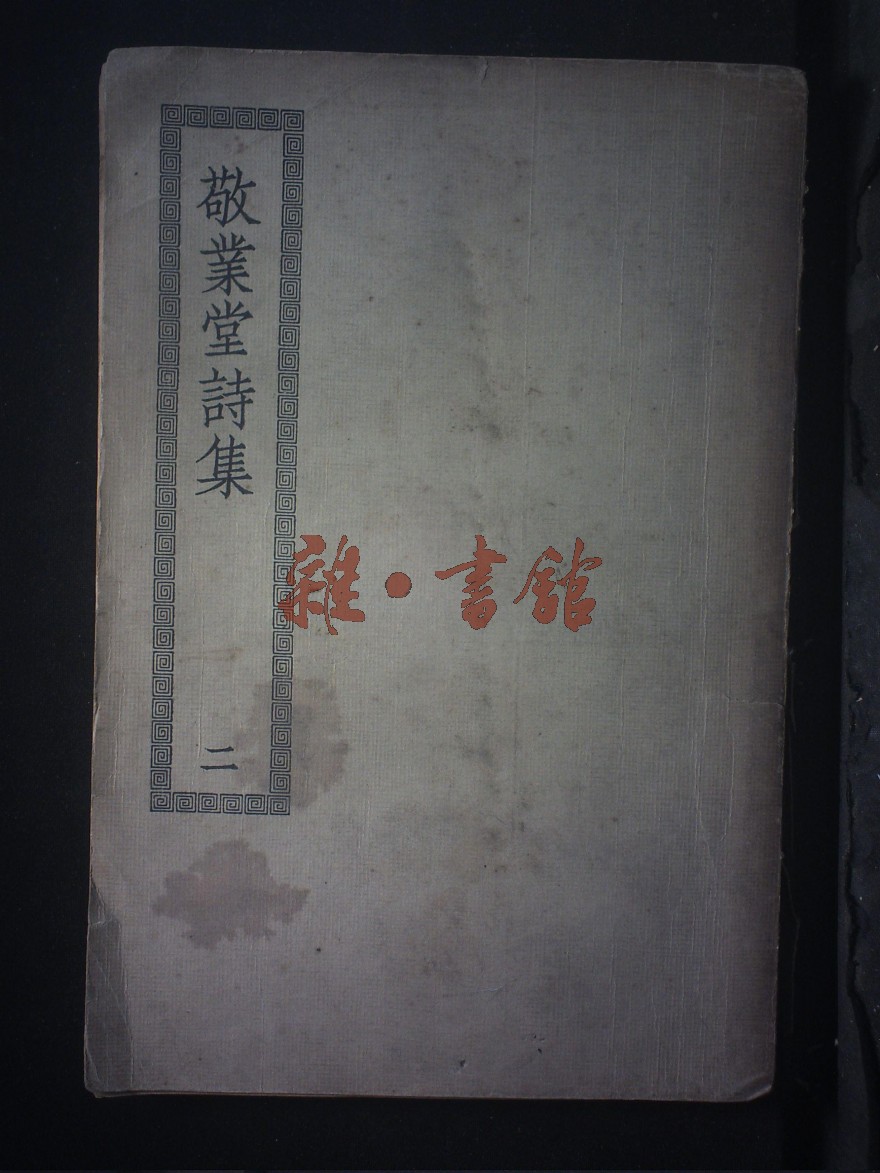 敬業堂詩集
二
雜·書館